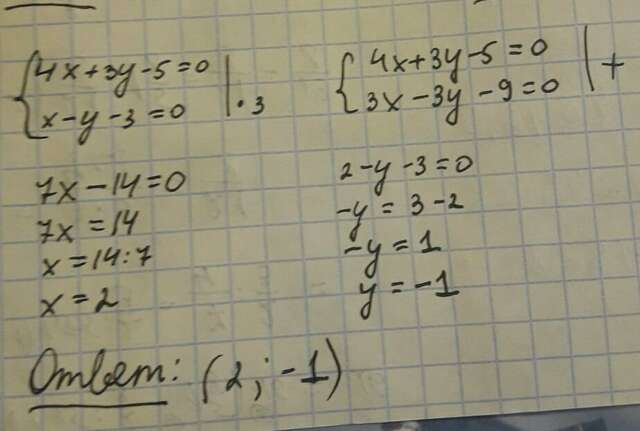 4x+3y-5=0
x-y-3=0 | ·3
4x+3y-5=0
3x-3y-9=0 | +
7x-14=0
7x=14
x=14:7
x=2
2-y-3=0
-y=3-2
-y=1
y=-1
Ответ: (2; -1)